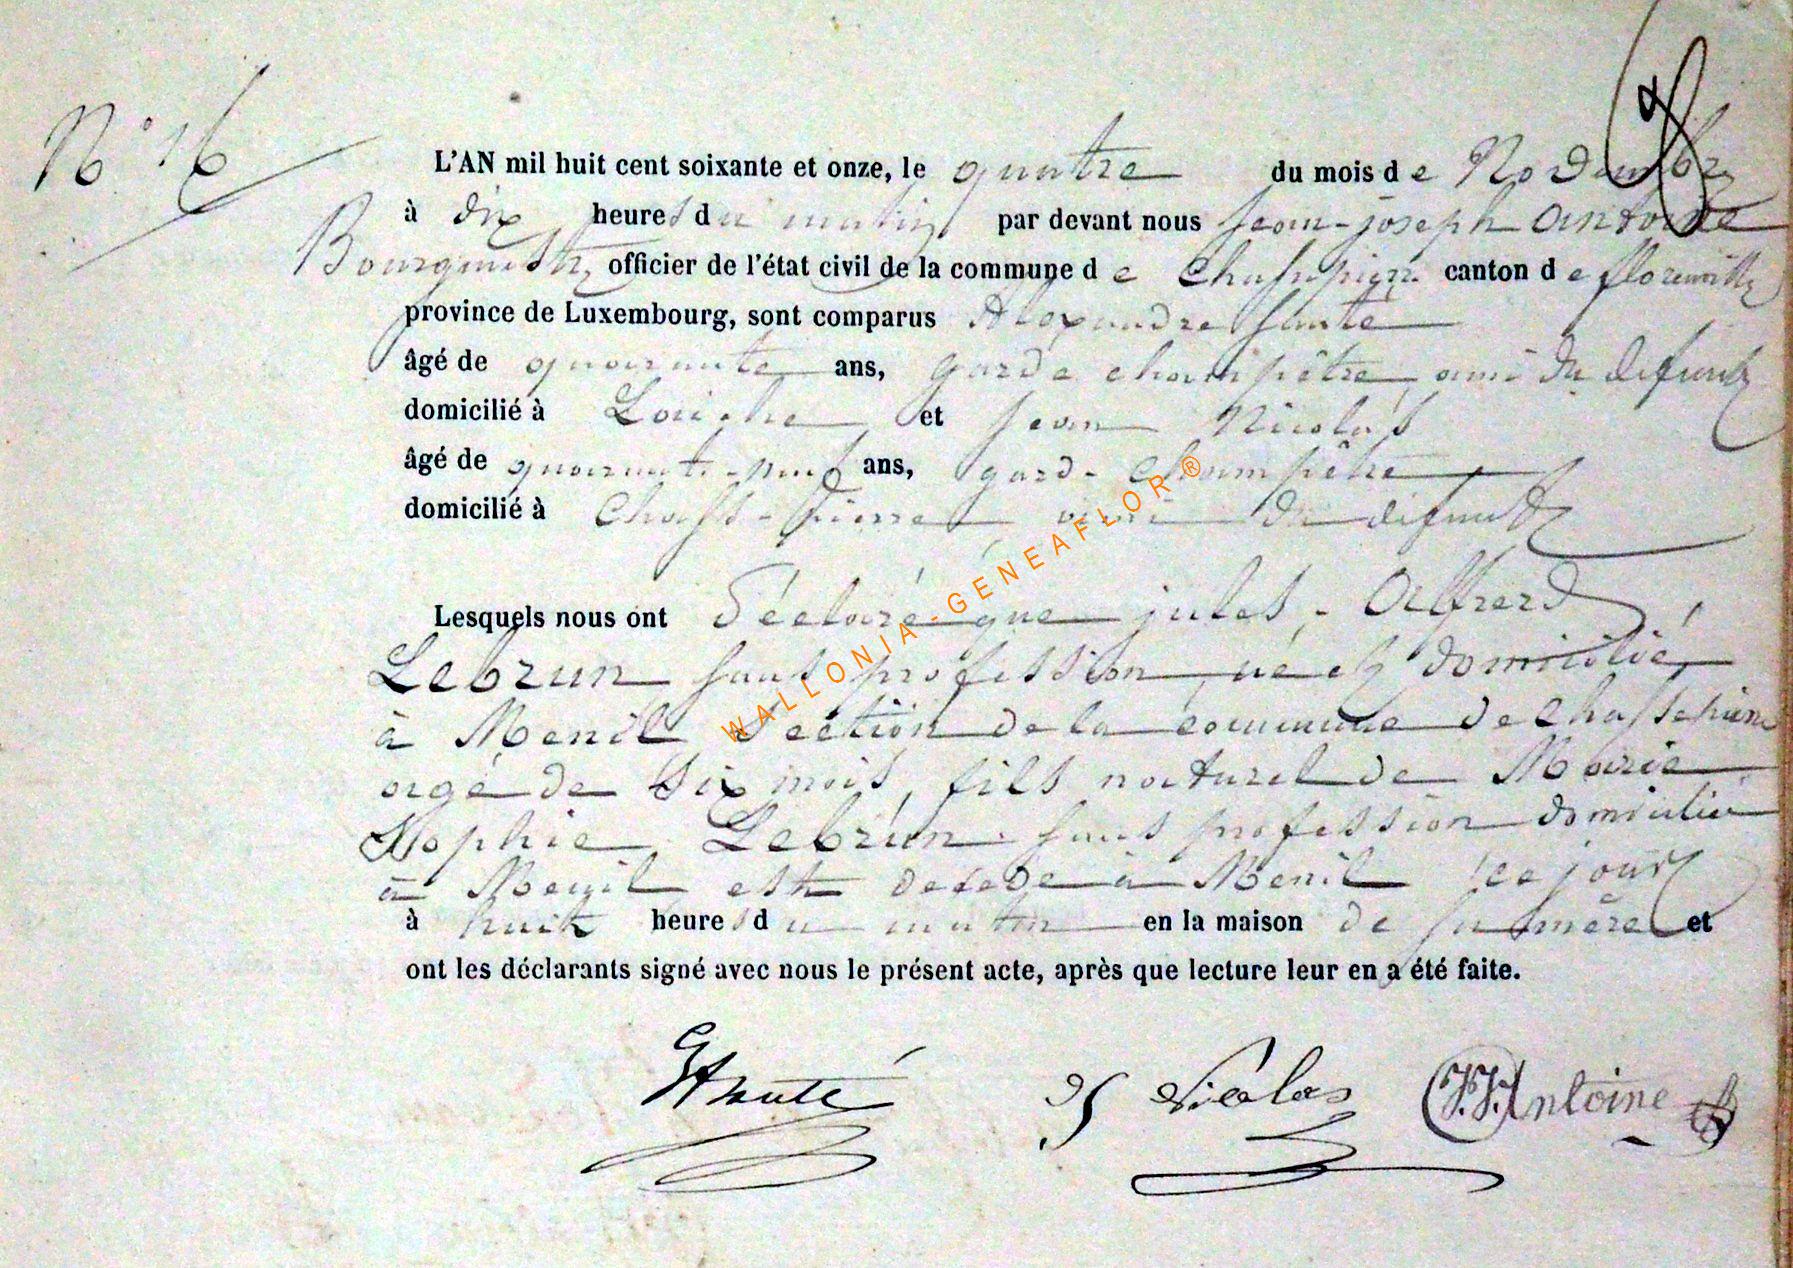 N° 16
L'AN mil huit cent soixante et onze, le quatre du mois de Novembre
à dix heures du matin par devant nous jean-joseph Antoine
Bourgmestre officier de l'état civil de la commune de Chassepierre canton de florenville
province de Luxembourg, sont comparus Alexandre hauté
âgé de quarante ans, garde champêtre, ami du defunt
domicilié à et jean Nicolas
âgé de quarante-neuf ans, gard-champêtre
domicilié à Chass-pierre ami du defunt
Lesquels nous ont déclaré que jules-Alfrerd
Lebrun sans profession, né et domicilié,
à Menil Section de la commune de Chassepierre
agé de six mois, fils naturel de Marie
Sophie Lebrun sans profession domicilié
à Menil est décedé à Menil ce jour
à huit heures du matin en la maison de sa mère et
ont les déclarants signé avec nous le présent acte, après que lecture leur en a été faite.
hauté J Nicolas J.J. Antoine
WALLONIA-GENEAFLOR®